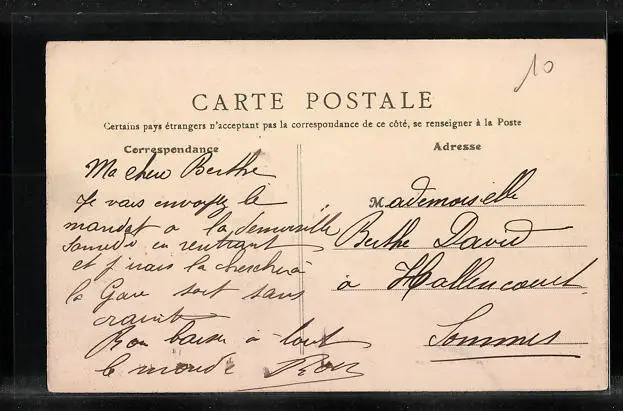 10
CARTE POSTALE
Certains pays étrangers n'acceptant pas la correspondance de ce côté, se renseigner à la Poste
Correspondance
Ma chere Berthe
Je vais envoyez le
mandat a la demoiselle
Samedi en rentrant
et j'irais la chercher à
la Gare soit sans
crainte
Bon baiser à tout
le monde
Adresse
Mademoiselle
Berthe David
à Hallencourt
Somme